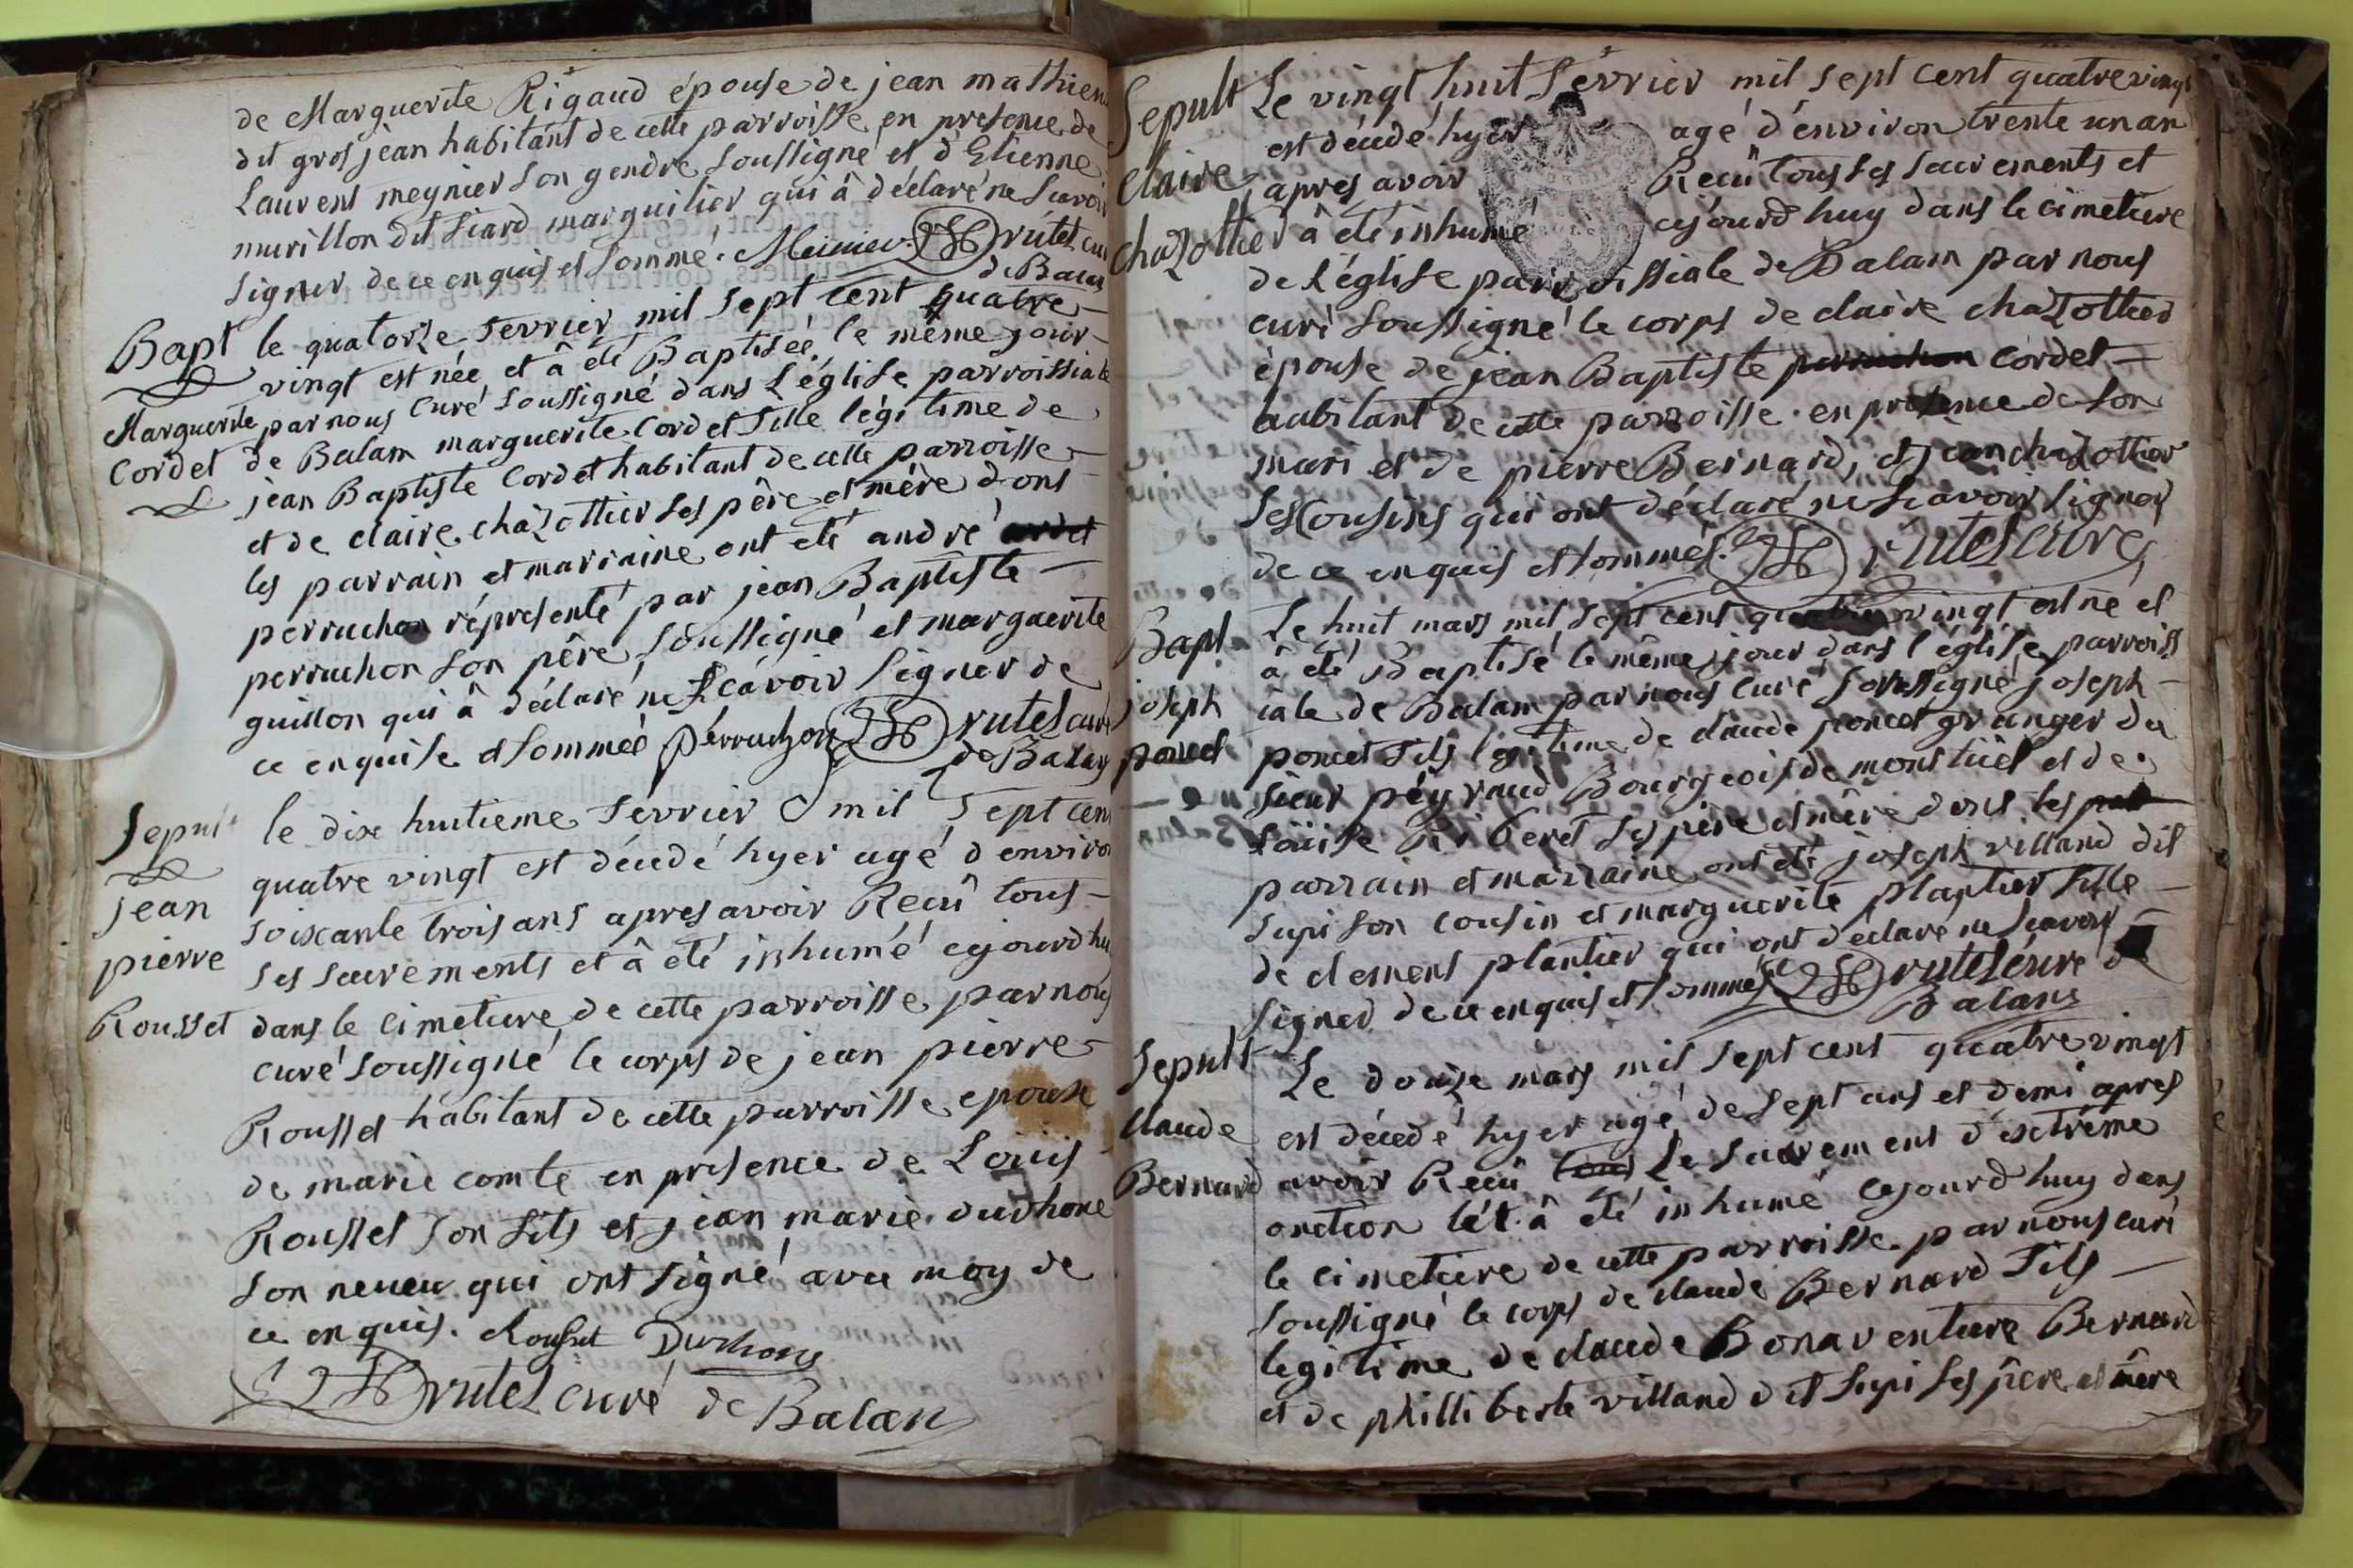 de Marguerite Rigaud épouse de jean mathieu
dit gros jean habitant de cette parroisse en presence de
Laurent meynier son gendre soussigné et d'Etienne
murillon dit siard marguilier qui â déclaré ne scavoir
signer de ce enquis et sommé. Meinier Drutel curé
de Balan
Bapt
Marguerite
Cordet
le quatorze fevrier mil sept cent quatre
vingt est née et â été Baptisée le même jour
par nous curé soussigné dans L'église parroissiale
de Balan marguerite Cordet fille légitime de
jean Baptiste Cordet habitant de cette parroisse
et de claire chazottier ses père et mère dont
les parrain et marraine ont été andré
perruchon réprésenté par jean Baptiste
perruchon son père soussigné et marguerite
guillon qui â déclaré ne scavoir signer de
ce enquise et sommée perruchon Drutel curé
de Balan
Sepult
jean
pierre
Rousset
le dixe huitieme fevrier mil sept cent
quatre vingt est décedé hyer agé d'environ
soixante trois ans apres avoir Recû tous
ses sacrements et â été inhumé cejourd'huy
dans le cimetiere de cette parroisse par nous
curé soussigné le corps de jean pierre
Rousset habitant de cette parroisse epouse
de marie comte en presence de Loüis
Rousset son fils et jean marie durhone
son neveu qui ont signé avec moy de
ce enquis. Rousset Durhone
Drutel curé de Balan
Sepult
claire
chazottier
Le vingt huit fevrier mil sept cent quatre vingt
est décedé hyer agé d'environ trente un an
apres avoir Recû tous ses sacrements et
â été inhumé cejourd'huy dans le cimetiere
de l'église parroissiale de Balan par nous
curé soussigné le corps de claire chazottier
épouse de jean Baptiste perruchon Cordet
habitant de cette parroisse en presence de son
mari et de pierre Bernard, et jean chazottier
ses Cousins qui ont déclaré ne scavoir signer
de ce enquis et sommés. Drutel curé
Bapt
joseph
poncet
Le huit mars mil sept cent quatre vingt est né et
â été Baptisé le même jour dans l'église parroiss
iale de Balan par nous curé soussigné joseph
poncet fils légitime de claude poncet granger du
sieur péyraud Bourgeois de montluel et de
Loüise Riberet ses père et mère dont les
parrain et marraine ont été joseph villand dit
supi son cousin et marguerite plantier fille
de clement plantier qui ont déclaré ne scavoir
signer de ce enquis et sommés Drutel curé de
Balans
Sepult
claude
Bernard
Le douze mars mil sept cent quatre vingt
est décedé hyer agé de sept ans et demi apres
avoir Recû tous Le sacrement d'extrême
onction et â été inhumé cejourd'huy dans
le cimetiere de cette parroisse par nous curé
soussigné le corps de claude Bernard fils
legitime de claude Bonaventure Bernard
et de philliberte villand dit supi ses père et mère